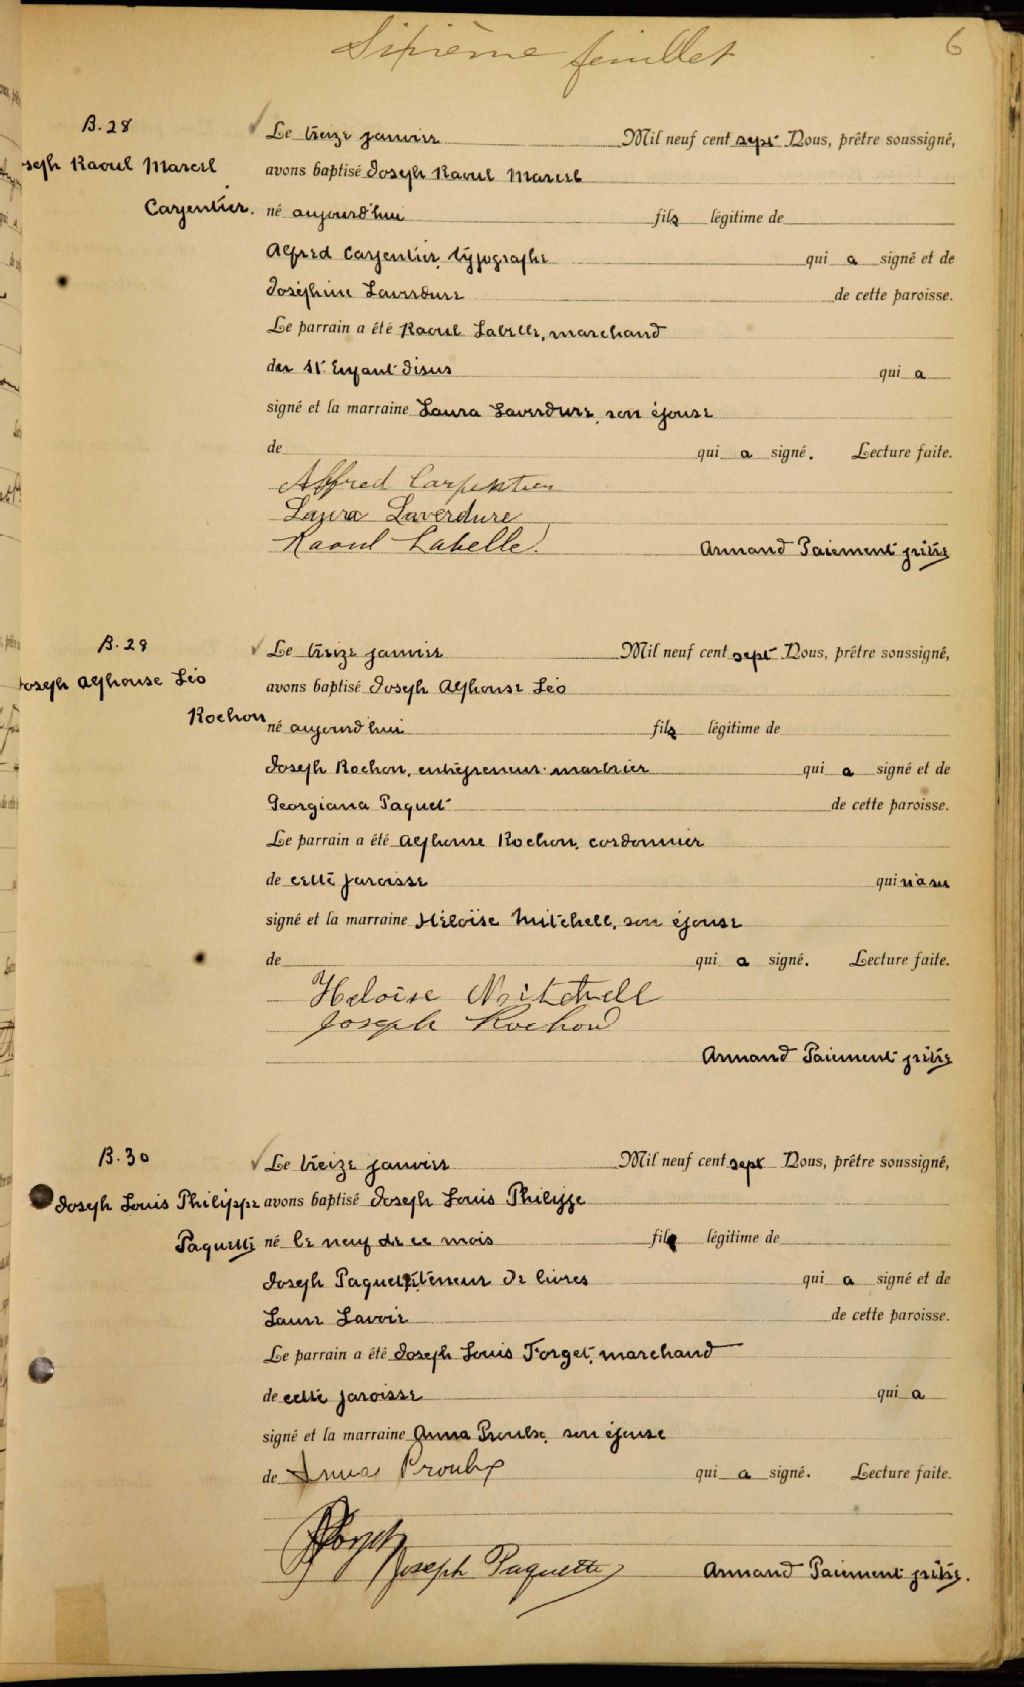 Sixième feuillet
6
B. 28
Joseph Raoul Marcel
Carpentier.
Le treize janvier Mil neuf cent sept Nous, prêtre soussigné,
avons baptisé Joseph Raoul Marcel
né aujourd'hui fils légitime de
Alfred Carpentier, typographe qui a signé et de
Joséphine Laverdure de cette paroisse.
Le parrain a été Raoul Labelle, marchand
du St. Enfant Jésus qui a
signé et la marraine Laura Laverdure, son épouse
de qui a signé. Lecture faite.
Alfred Carpentier
Laura Laverdure
Raoul Labelle.
Armand Paiement ptre
B. 29
Joseph Alphonse Léo
Rochon
Le treize janvier Mil neuf cent sept Nous, prêtre soussigné,
avons baptisé Joseph Alphonse Léo
né aujourd'hui fils légitime de
Joseph Rochon, entrepreneur-marbrier qui a signé et de
Georgiana Paquet de cette paroisse.
Le parrain a été Alphonse Rochon, cordonnier
de cette paroisse qui n'a su
signé et la marraine Héloïse Mitchell, son épouse
de qui a signé. Lecture faite.
Heloïse Mitchell
Joseph Rochon
Armand Paiement ptre
B. 30
Joseph Louis Philippe
Paquette
Le treize janvier Mil neuf cent sept Nous, prêtre soussigné,
avons baptisé Joseph Louis Philippe
né le neuf de ce mois fils légitime de
Joseph Paquette, teneur de livres qui a signé et de
Laura Lavoie de cette paroisse.
Le parrain a été Joseph Louis Forget, marchand
de cette paroisse qui a
signé et la marraine Anna Proulx, son épouse
de Anna Proulx qui a signé. Lecture faite.
Joseph Paquette
Armand Paiement ptre.